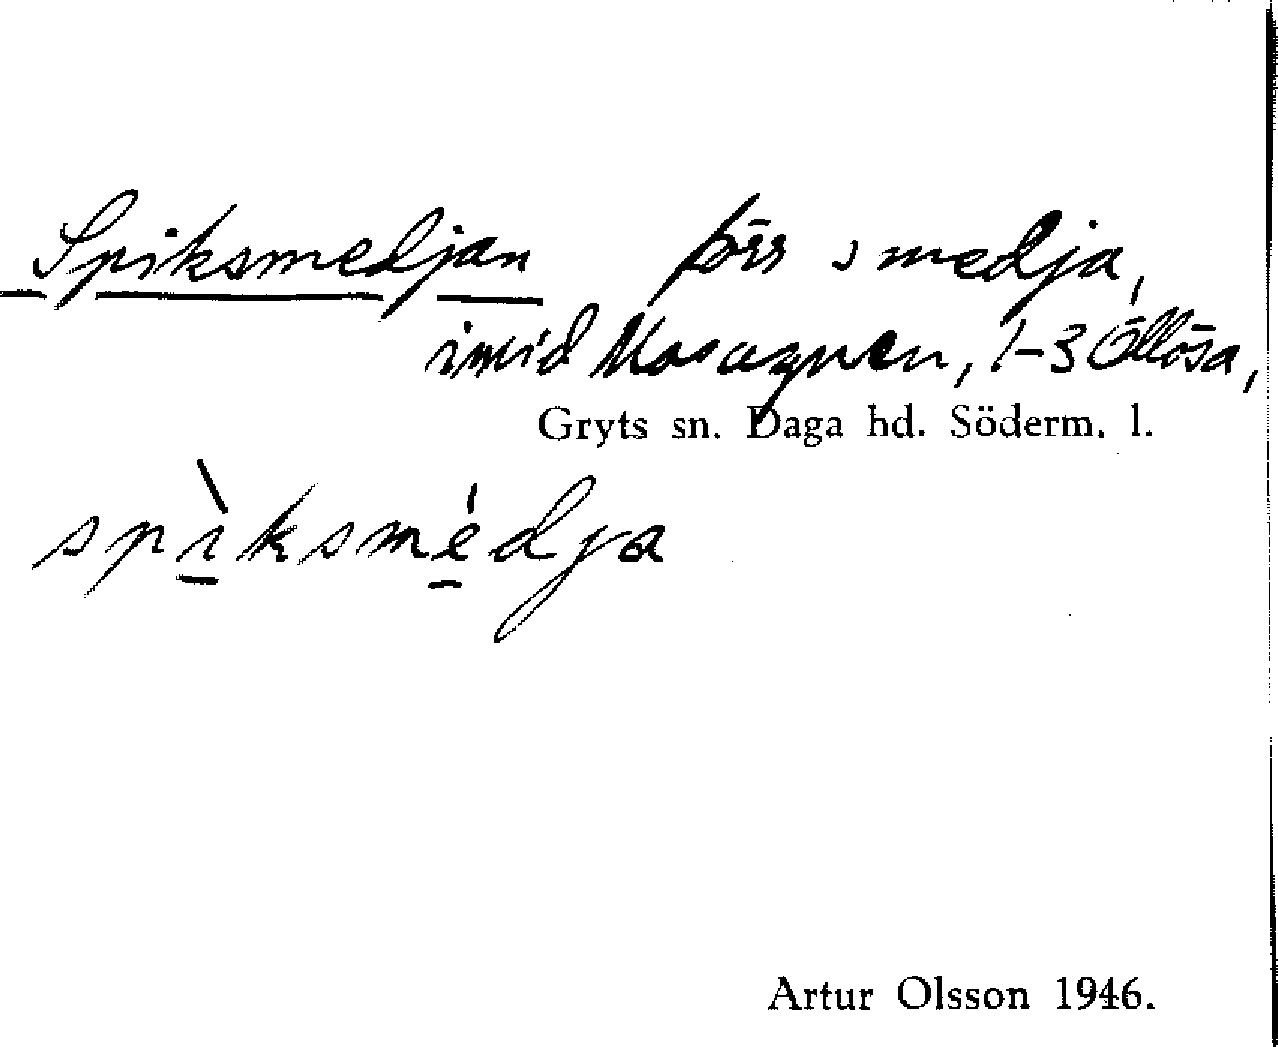 Spiksmedjan förr smedja,
invid Mosaznen, 1-3 Öllösa,
Gryts sn. Daga hd. Söderm. l.
spìksmédja
Artur Olsson 1946.